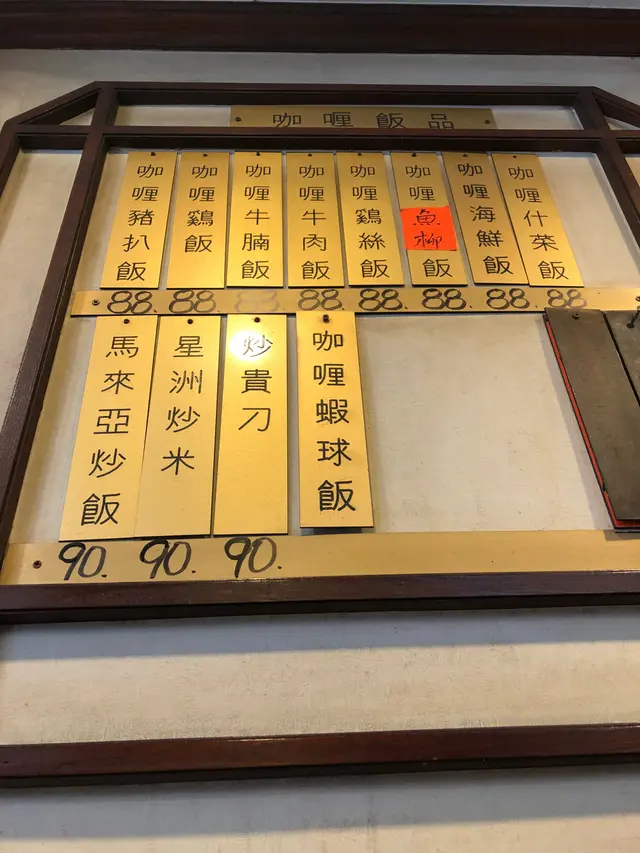 咖喱飯品
咖喱豬扒飯
咖喱鷄飯
咖喱牛腩飯
咖喱牛肉飯
咖喱鷄絲飯
咖喱魚柳飯
咖喱海鮮飯
咖喱什菜飯
88. 88 88 88. 88. 88. 88 88
馬來亞炒飯
星洲炒米
炒貴刀
咖喱蝦球飯
90. 90. 90.